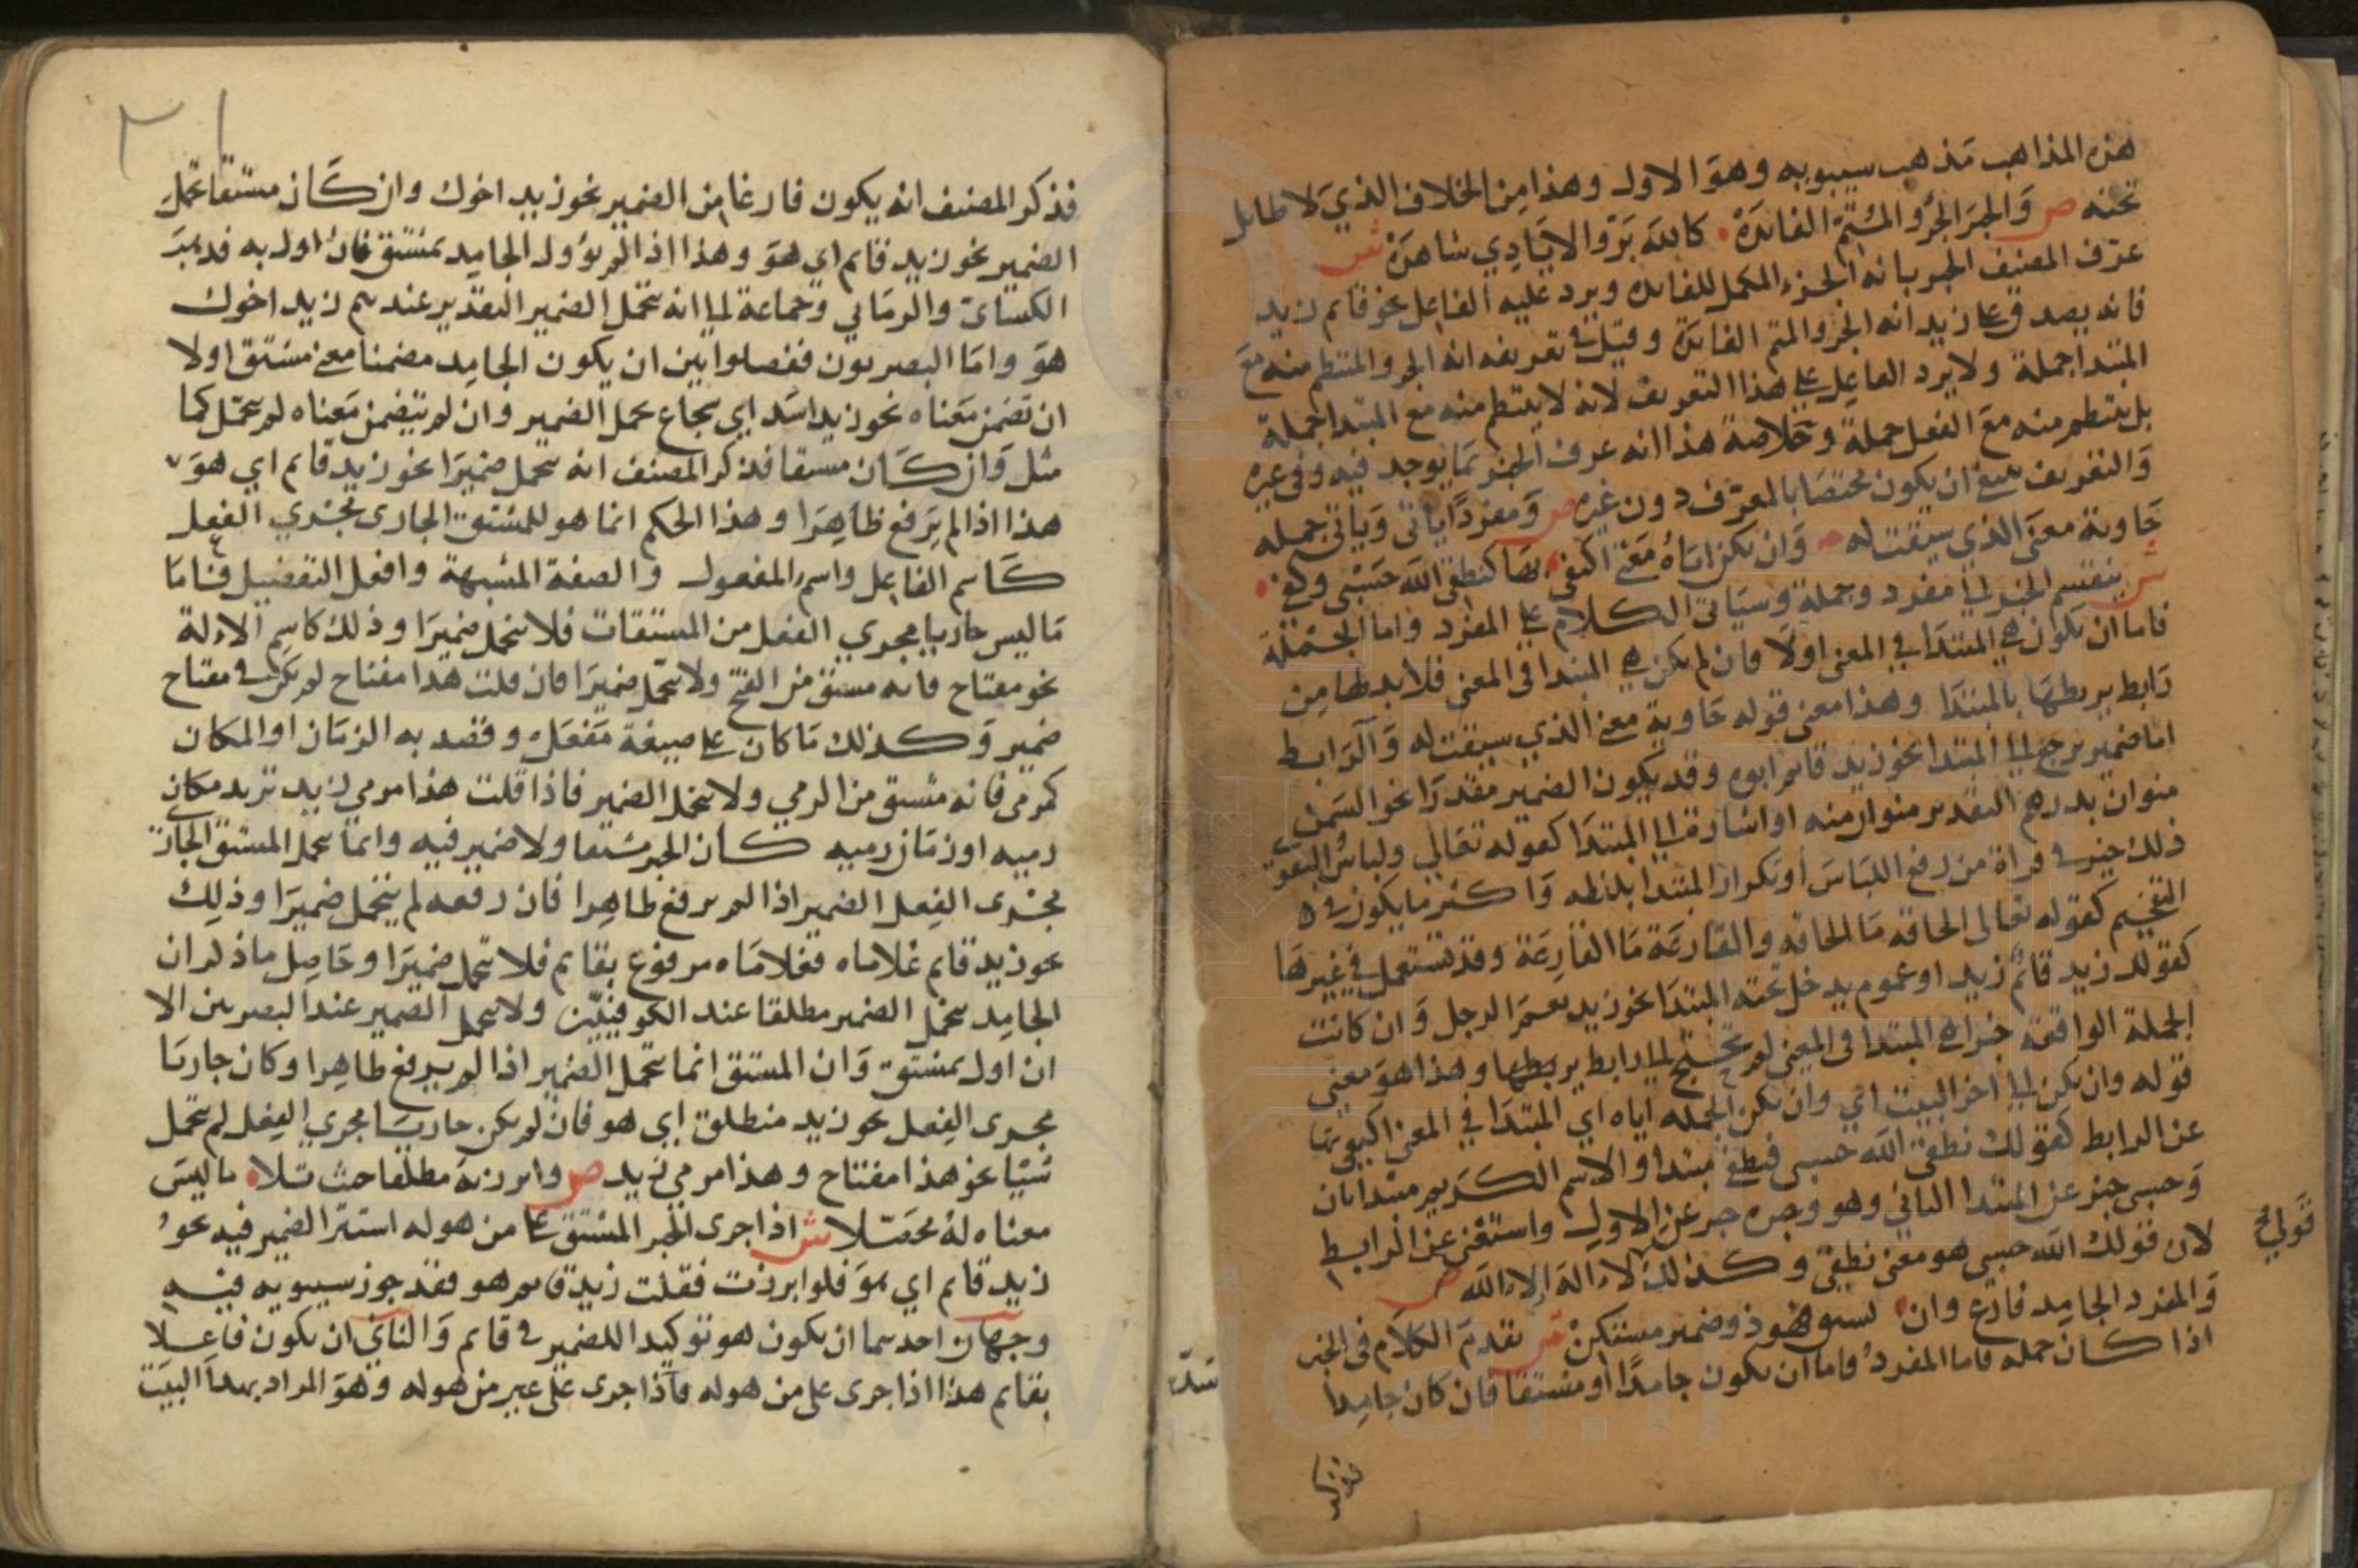 هذه المذاهب مذهب سيبويه وهو الاول وهذا من الخلاف الذي لا طايل
تحته ص والخبر الجزو المتم الفائدة كالله بر والايادي شاهدة ش
عرف المصنف الخبر بانه الجزء المكمل للفايدة ويرد عليه الفاعل نحو قام زيد
فانه يصدق على زيد انه الجزو المتم الفائدة وقيل في تعريفه انه الجزو المنتظم منه مع
المبتدا جملة ولا يرد الفاعل على هذا التعريف لانه لا ينتظم منه مع المبتدا جملة
بل ينتظم منه مع الفعل جملة وخلاصة هذا انه عرف الخبر بما يوجد فيه وفي غيره
والتعريف ينبغي ان يكون مختصا بالمعرف دون غيره ص ومفردا ياتي وياتي جمله
حاوية معنى الذي سيقت له وان تكن اياه معنى اكتفى بها كنطقي الله حسبي وكفى
ش ينقسم الخبر الى مفرد وجملة وسياتي الكلام على المفرد واما الجملة
فاما ان تكون هي المبتدا في المعنى اولا فان لم تكن هي المبتدا في المعنى فلا بد لها من
رابط يربطها بالمبتدا وهذا معنى قوله حاوية معنى الذي سيقت له والرابط
اما ضمير يرجع الى المبتدا نحو زيد قام ابوه وقد يكون الضمير مقدرا نحو السمن
منوان بدرهم التقدير منوان منه او اشارة الى المبتدا كقوله تعالى ولباس التقوى
ذلك خير في قراة من رفع اللباس او تكرار المبتدا بلفظه واكثر ما يكون في
التفخيم كقوله تعالى الحاقه ما الحاقه والقارعة ما القارعة وقد تستعمل في غيرها
كقولك زيد قائم زيد او عموم يدخل تحته المبتدا نحو زيد نعم الرجل وان كانت
الجملة الواقعة خبرا هي المبتدا في المعنى لم تحتج الى رابط يربطها وهذا هو معنى
قوله وان تكن الى اخر البيت اي وان تكن الجمله اياه اي المبتدا في المعنى اكتفى بها
عن الرابط كقولك نطقي الله حسبي فنطقي مبتدا والاسم الكريم مبتدا ثان
وحسبي خبر عن المبتدا الثاني وهو وخبره خبر عن الاول واستغنى عن الرابط
لان قولك الله حسبي هو معنى نطقي وكذلك لا اله الا الله ص
قولي
والمفرد الجامد فارغ وان يشتق فهو ذو ضمير مستكن ش تقدم الكلام في الخبر
اذا كان جمله فاما المفرد فاما ان يكون جامدا او مشتقا فان كان جامدا
فذكر
فذكر المصنف انه يكون فارغا من الضمير نحو زيد اخوك وان كان مشتقا تحمل
الضمير نحو زيد قايم اي هو وهذا اذا لم يؤول الجامد بمشتق فان اول به
الكساي والرماني وجماعة الى انه تحمل الضمير التقدير عندهم زيد اخوك
هو واما البصريون ففصلوا بين ان يكون الجامد مضمنا معنى مشتق اولا
ان تضمن معناه نحو زيد اسد اي شجاع تحمل الضمير وان لم يتضمن معناه لم تحمل كما
مثل وان كان مشتقا فذكر المصنف انه تحمل ضميرا نحو زيد قايم اي هو
هذا اذا لم يرفع ظاهرا وهذا الحكم انما هو للمشتق الجاري مجري الفعل
كاسم الفاعل واسم المفعول والصفة المشبهة وافعل التفضيل فاما
ما ليس جاريا مجري الفعل من المشتقات فلا تحمل ضميرا وذلك كاسم الالة
نحو مفتاح فانه مشتق من الفتح ولا تحمل ضميرا فان قلت هذا مفتاح لم يكن في مفتاح
ضمير وكذلك ما كان على صيغة مفعل وقصد به الزمان او المكان
كمرمى فانه مشتق من الرمي ولا تحمل الضمير فاذا قلت هذا مرمي زيد تريد مكان
رميه او زمان رميه كان الخبر مشتقا ولا ضمير فيه وانما تحمل المشتق الجاري
مجرى الفعل الضمير اذا لم يرفع ظاهرا فان رفعه لم يتحمل ضميرا وذلك
نحو زيد قايم غلاماه فغلاماه مرفوع بقايم فلا تحمل ضميرا وحاصل ما ذكر ان
الجامد تحمل الضمير مطلقا عند الكوفيين ولا تحمل الضمير عند البصريين الا
ان اول بمشتق وان المشتق انما تحمل الضمير اذا لم يرفع ظاهرا وكان جاريا
مجرى الفعل نحو زيد منطلق اي هو فان لم يكن جاريا مجري الفعل لم تحمل
شيا نحو هذا مفتاح وهذا مرمي زيد ص وابرزنه مطلقا حيث تلا ما ليس
معناه له محصلا ش اذا جرى الخبر المشتق على من هو له استتر الضمير فيه نحو
زيد قايم اي هو فلو ابرزت فقلت زيد قايم هو فقد جوز سيبويه فيه
وجهان احدهما ان يكون هو توكيدا للضمير في قايم والثاني ان يكون فاعلا
بقايم هذا اذا جرى على من هو له فاذا جرى على غير من هو له وهو المراد بهذا البيت